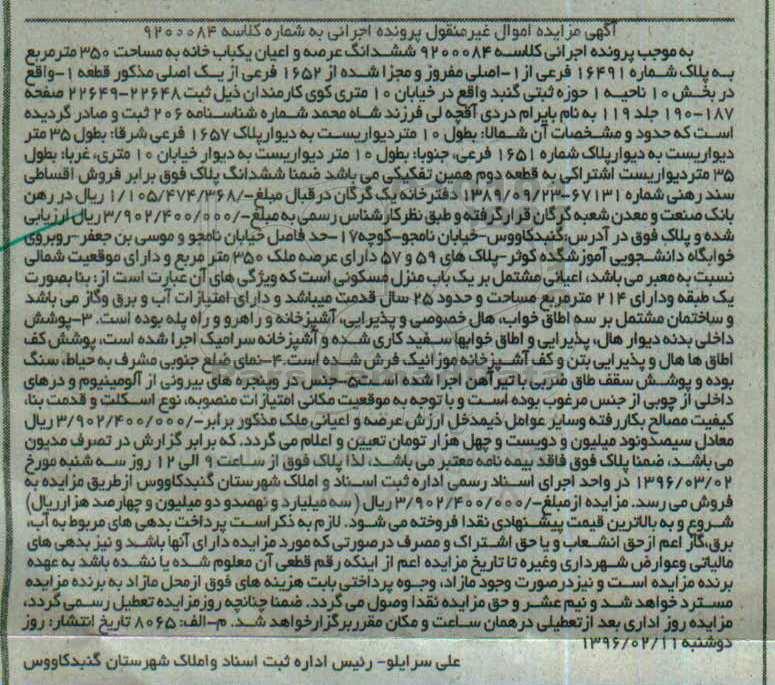 آگهی مزایده اموال غیرمنقول پرونده اجرائی به شماره کلاسه ۹۲۰۰۰۸۴
به موجب پرونده اجرائی کلاسه ۹۲۰۰۰۸۴ ششدانگ عرصه و اعیان یکباب خانه به مساحت ۳۵۰ مترمربع
به پلاک شماره ۱۶۴۹۱ فرعی از۱-اصلی مفروز و مجزا شده از ۱۶۵۲ فرعی از یک اصلی مذکور قطعه ۱-واقع
در بخش ۱۰ ناحیه ۱ حوزه ثبتی گنبد واقع در خیابان ۱۰ متری کوی کارمندان ذیل ثبت ۲۲۶۴۸-۲۲۶۴۹ صفحه
۱۸۷-۱۹۰ جلد ۱۱۹ به نام بایرام دردی آقچه لی فرزند شاه محمد شماره شناسنامه ۲۰۶ ثبت و صادر گردیده
است که حدود و مشخصات آن شمالا: بطول ۱۰ متر دیواریست به دیوارپلاک ۱۶۵۷ فرعی شرقا: بطول ۳۵ متر
دیواریست به دیوارپلاک شماره ۱۶۵۱ فرعی، جنوبا: بطول ۱۰ متر دیواریست به دیوار خیابان ۱۰ متری، غربا: بطول
۳۵ متردیواریست اشتراکی به قطعه دوم همین تفکیکی می باشد ضمنا ششدانگ پلاک فوق برابر فروش اقساطی
سند رهنی شماره ۶۷۱۳۱-۱۳۸۹/۰۹/۲۳ دفترخانه یک گرگان درقبال مبلغ-/۱/۱۰۵/۴۷۴/۳۶۸ ریال در رهن
بانک صنعت و معدن شعبه گرگان قرارگرفته و طبق نظرکارشناس رسمی به مبلغ-/۳/۹۰۲/۴۰۰/۰۰۰ ریال ارزیابی
شده و پلاک فوق در آدرس:گنبدکاووس-خیابان نامجو-کوچه۱۷-حد فاصل خیابان نامجو و موسی بن جعفر-روبروی
خوابگاه دانشجویی آموزشکده کوثر-پلاک های ۵۹ و ۵۷ دارای عرصه ملک ۳۵۰ متر مربع و دارای موقعیت شمالی
نسبت به معبر می باشد، اعیانی مشتمل بر یک باب منزل مسکونی است که ویژگی های آن عبارت است از: بنا بصورت
یک طبقه ودارای ۲۱۴ مترمربع مساحت و حدود ۲۵ سال قدمت میباشد و دارای امتیازات آب و برق وگاز می باشد
و ساختمان مشتمل بر سه اطاق خواب، هال خصوصی و پذیرایی، آشپزخانه و راهرو و راه پله بوده است. ۳-پوشش
داخلی بدنه دیوار هال، پذیرایی و اطاق خوابها سفید کاری شده و آشپزخانه سرامیک اجرا شده است، پوشش کف
اطاق ها هال و پذیرایی بتن و کف آشپزخانه موزائیک فرش شده است.۴-نمای ضلع جنوبی مشرف به حیاط، سنگ
بوده و پوشش سقف طاق ضربی با تیرآهن اجرا شده است۵-جنس در وپنجره های بیرونی از آلومینیوم و درهای
داخلی از چوبی از جنس مرغوب بوده است و با توجه به موقعیت مکانی امتیازات منصوبه، نوع اسکلت و قدمت بنا،
کیفیت مصالح بکاررفته وسایر عوامل ذیمدخل ارزش عرصه و اعیانی ملک مذکور برابر-/۳/۹۰۲/۴۰۰/۰۰۰ ریال
معادل سیصدونود میلیون و دویست و چهل هزار تومان تعیین و اعلام می گردد. که برابر گزارش در تصرف مدیون
می باشد، ضمنا پلاک فوق فاقد بیمه نامه معتبر می باشد، لذا پلاک فوق از ساعت ۹ الی ۱۲ روز سه شنبه مورخ
۱۳۹۶/۰۳/۰۲ در واحد اجرای اسناد رسمی اداره ثبت اسناد و املاک شهرستان گنبدکاووس ازطریق مزایده به
فروش می رسد. مزایده ازمبلغ-/۳/۹۰۲/۴۰۰/۰۰۰ ریال (سه میلیارد و نهصدو دو میلیون و چهارصد هزارریال)
شروع و به بالاترین قیمت پیشنهادی نقدا فروخته می شود. لازم به ذکراست پرداخت بدهی های مربوط به آب،
برق،گاز اعم ازحق انشعاب و یاحق اشتراک و مصرف درصورتی که مورد مزایده دارای آنها باشد و نیز بدهی های
مالیاتی وعوارض شهرداری وغیره تا تاریخ مزایده اعم از اینکه رقم قطعی آن معلوم شده یا نشده باشد به عهده
برنده مزایده است و نیزدرصورت وجود مازاد، وجوه پرداختی بابت هزینه های فوق ازمحل مازاد به برنده مزایده
مسترد خواهد شد و نیم عشر و حق مزایده نقدا وصول می گردد. ضمنا چنانچه روزمزایده تعطیل رسمی گردد،
مزایده روز اداری بعد ازتعطیلی درهمان ساعت و مکان مقرربرگزارخواهد شد. م-الف: ۸۰۶۵ تاریخ انتشار: روز
دوشنبه ۱۳۹۶/۰۲/۱۱
علی سرایلو- رئیس اداره ثبت اسناد واملاک شهرستان گنبدکاووس